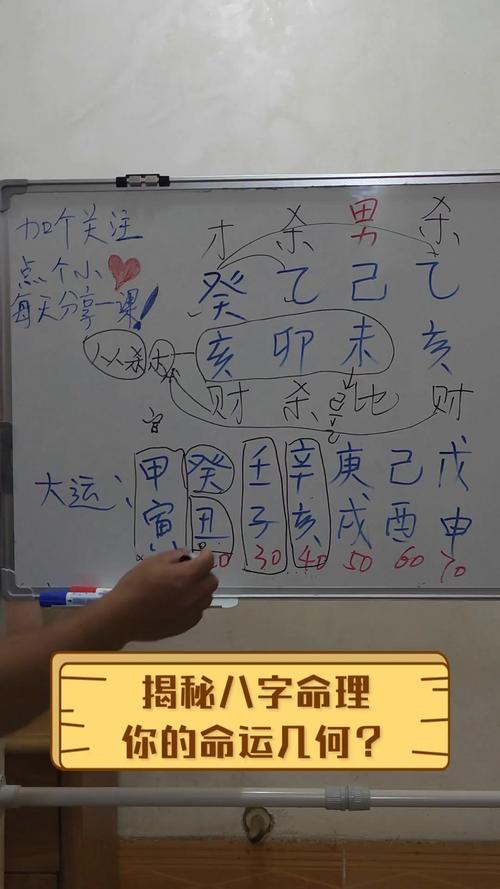 加个关注
点个小
每天分享一课！
才 杀 男 杀
癸 乙 己 乙
亥 卯 未 亥
财 杀 比 财
从杀
大运：
甲 癸 壬 辛 庚 己 戊
寅 丑 子 亥 戌 酉 申
30 40 50 60 70
揭秘八字命理
你的命运几何？